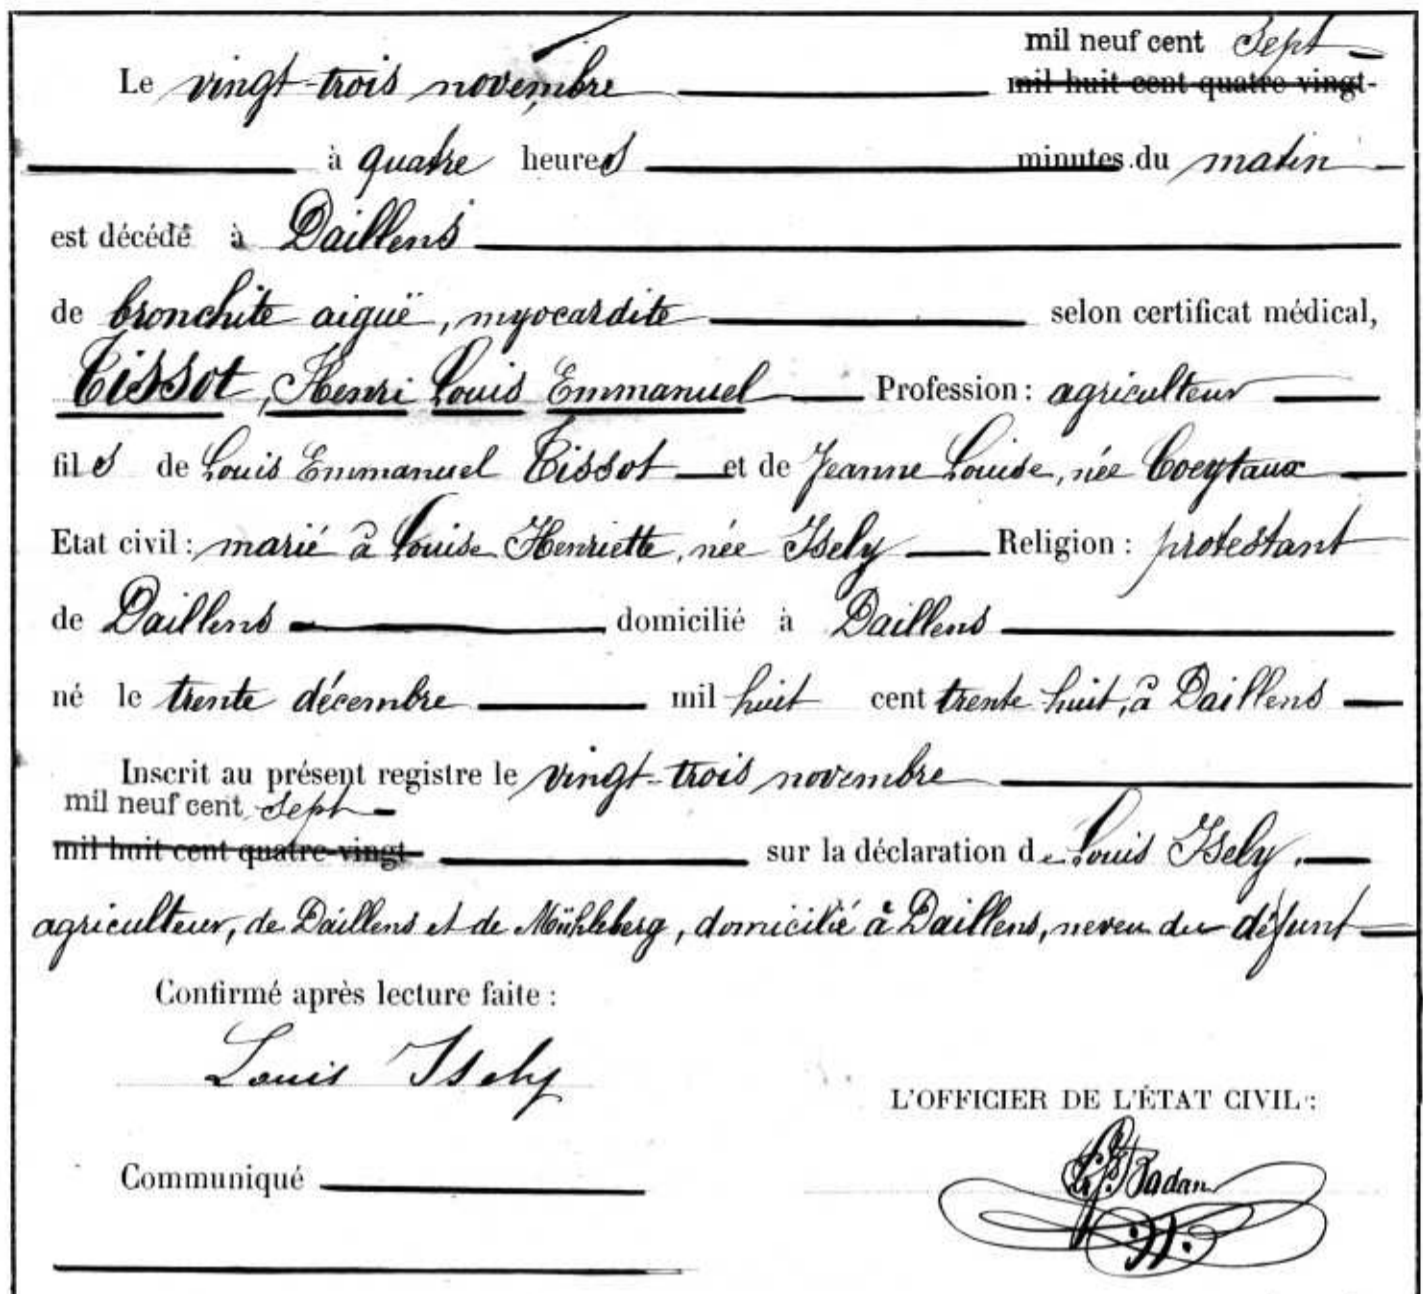 mil neuf cent Sept
Le vingt-trois novembre mil huit cent quatre vingt-
à quatre heures minutes du matin
est décédé à Daillens
de bronchite aiguë, myocardite selon certificat médical,
Tissot, Henri Louis Emmanuel Profession : agriculteur
fils de Louis Emmanuel Tissot et de Jeanne Louise, née Coeytaux
Etat civil : marié à Louise Henriette, née Isely Religion : protestant
de Daillens domicilié à Daillens
né le trente décembre mil huit cent trente huit, à Daillens
Inscrit au présent registre le vingt-trois novembre
mil neuf cent sept
mil huit cent quatre-vingt sur la déclaration de Louis Isely,
agriculteur, de Daillens et de Mühleberg, domicilié à Daillens, neveu du défunt
Confirmé après lecture faite :
Louis Isely
L'OFFICIER DE L'ÉTAT CIVIL :
Communiqué
Badan